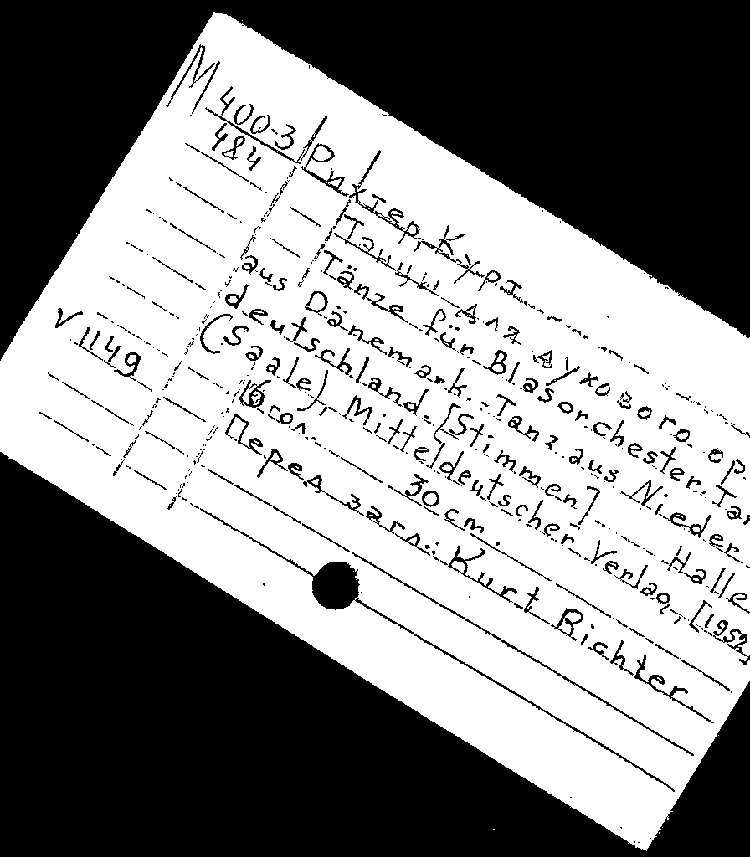 М 400-3
484
Рихтер, Курт
Танцы для духового ор.
Tänze für Blasorchester. Tan
aus Dänemark. Tanz aus Nieder
deutschland. [Stimmen] Halle
(Saale), Mitteldeutscher Verlag, [1952]
16 гол. 30 cm.
Перед загл.: Kurt Richter
V 1149